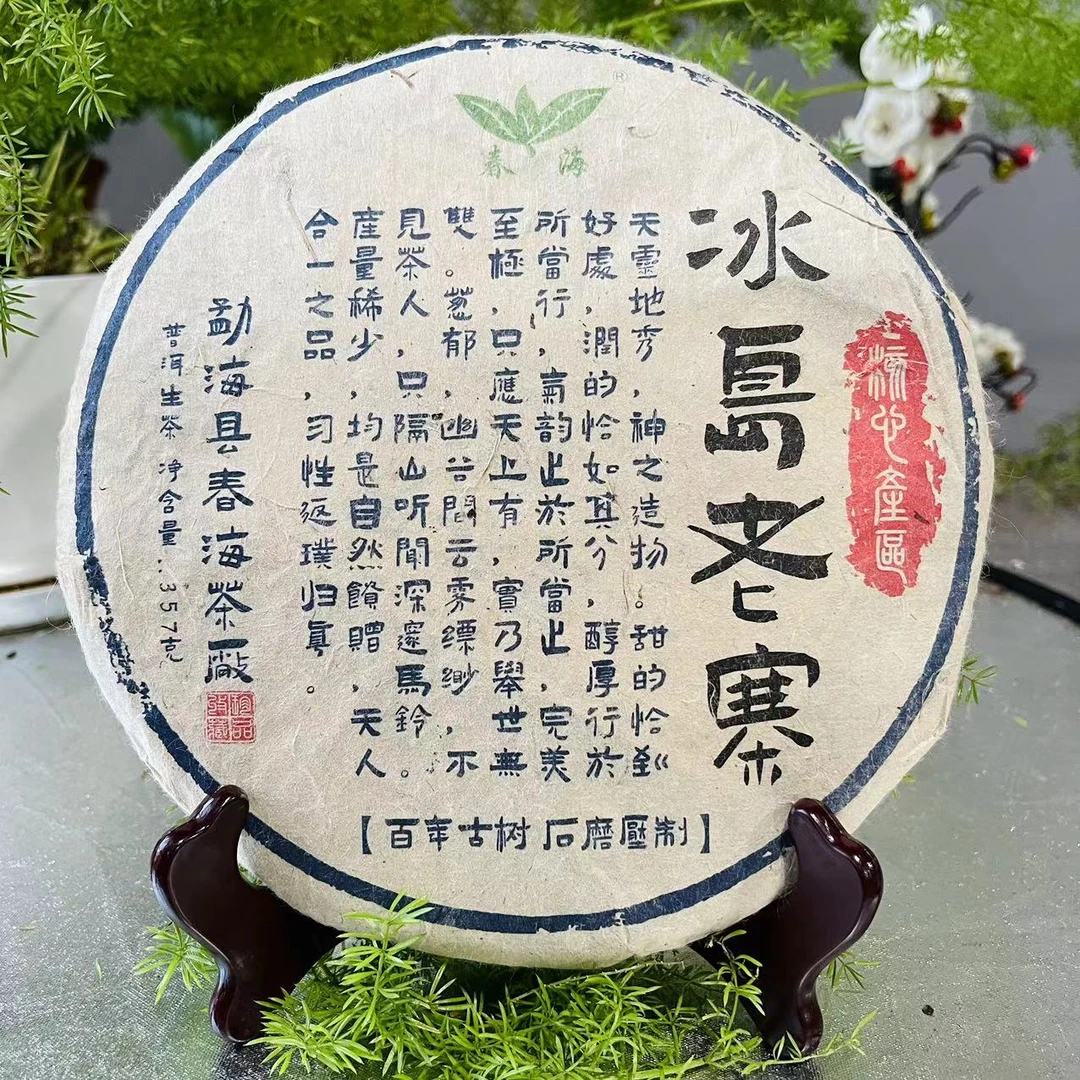 ®
春海
核心產區
冰島老寨
天靈地秀,神之造物。甜的恰到
好處,潤的恰如其分,醇厚行於
所當行,氣韵止於所當止,完美
至極,只應天上有,實乃舉世無
雙。葱郁,幽谷間云雾缥缈,不
見茶人,只隔山听聞深邃馬鈴。
産量稀少,均是自然饋贈,天人
合一之品,习性返璞归真。
勐海县春海茶廠
珍品收藏
普洱生茶 净含量:357克
【百年古树 石磨壓制】